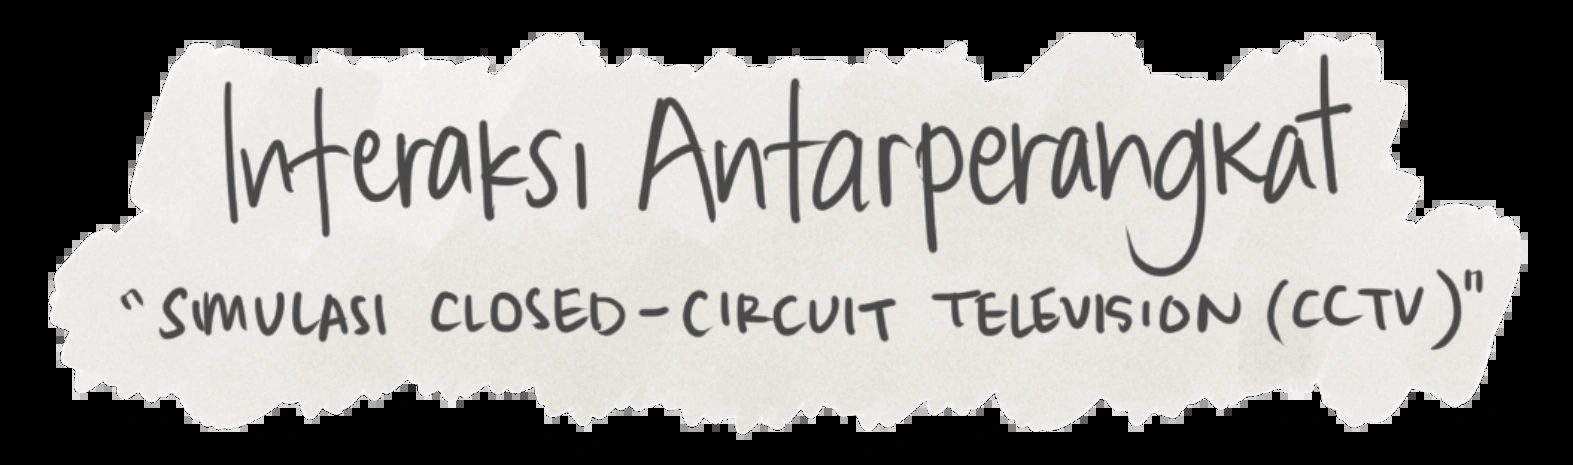 Interaksi Antarperangkat
"SIMULASI CLOSED-CIRCUIT TELEVISION (CCTV)"